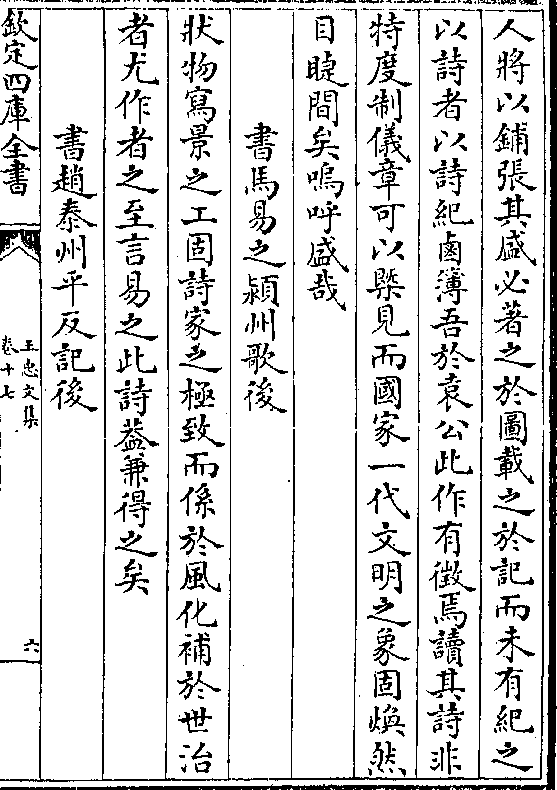 人將以鋪張其盛必著之於圖載之於記而未有紀之
以詩者以詩紀鹵簿吾於袁公此作有徵焉讀其詩非
特度制儀章可以槩見而國家一代文明之象固煥然
目睫間矣嗚呼盛哉
書馬易之潁州歌後
狀物寫景之工固詩家之極致而係於風化補於世治
者尤作者之至言易之此詩葢兼得之矣
書趙泰州平反記後
欽定四庫全書
王忠文集
卷十七
六